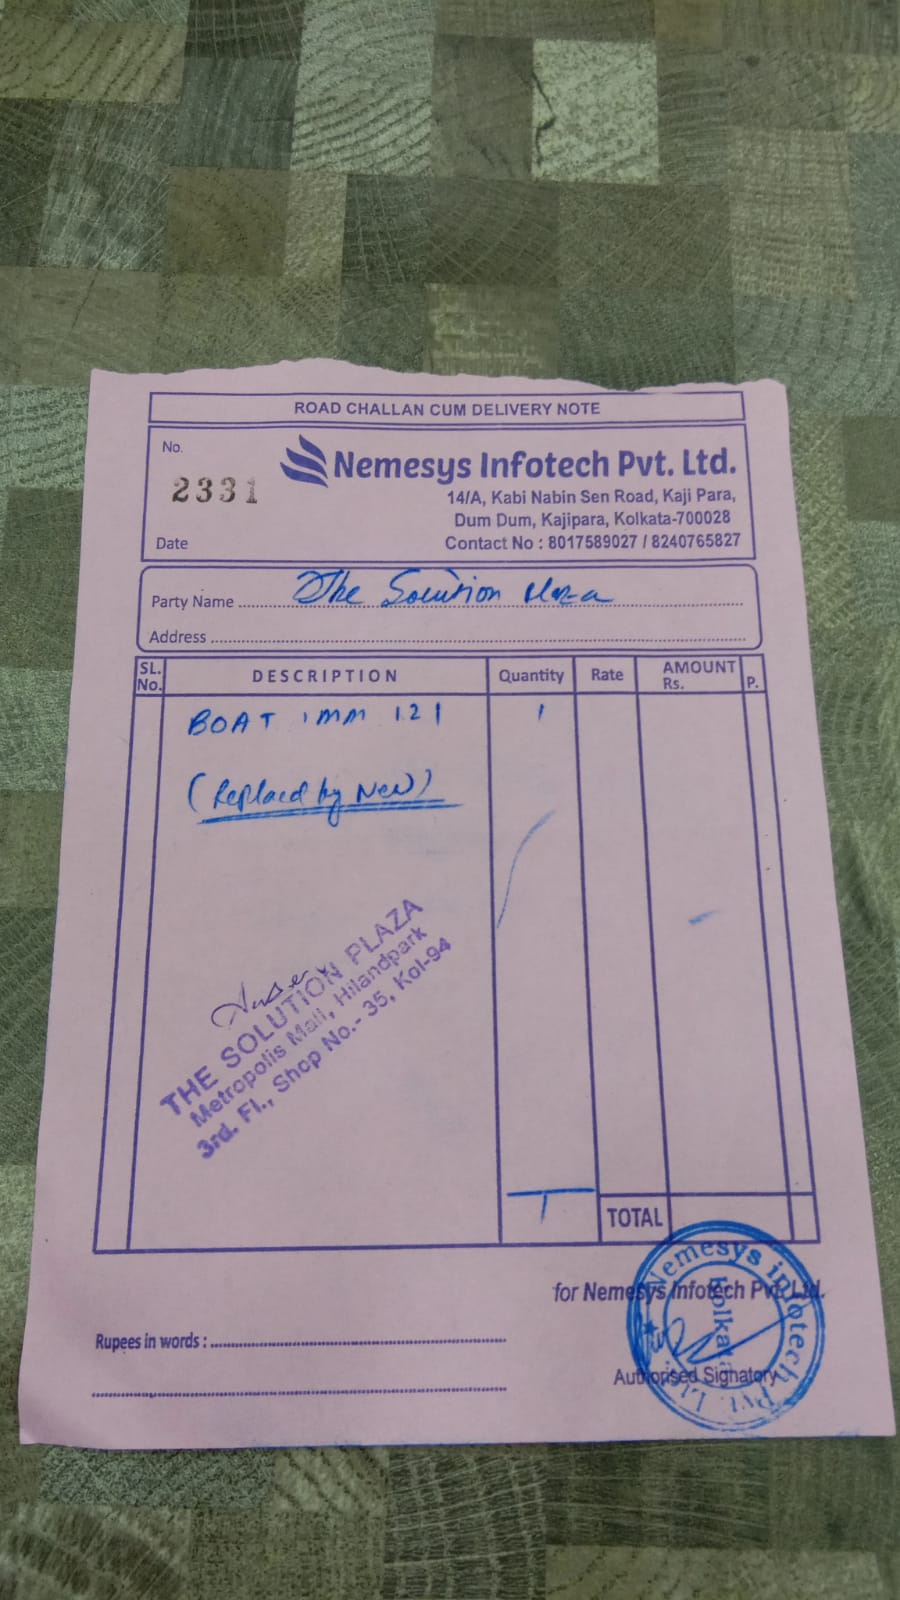 ROAD CHALLAN CUM DELIVERY NOTE
No.
2331
Nemesys Infotech Pvt. Ltd.
14/A, Kabi Nabin Sen Road, Kaji Para,
Dum Dum, Kajipara, Kolkata-700028
Date
Contact No : 8017589027 / 8240765827
Party Name The Solution Plaza
Address
SL. No. DESCRIPTION Quantity Rate AMOUNT Rs. P.
BOAT IMM 121 1
(Replaced by New)
THE SOLUTION PLAZA
Metropolis Mall, Hilandpark
3rd. Fl., Shop No.- 35, Kol-94
1 TOTAL
for Nemesys Infotech Pvt. Ltd.
Nemesys infotech Pvt. Ltd.
Kolkata
Rupees in words :
Authorised Signatory